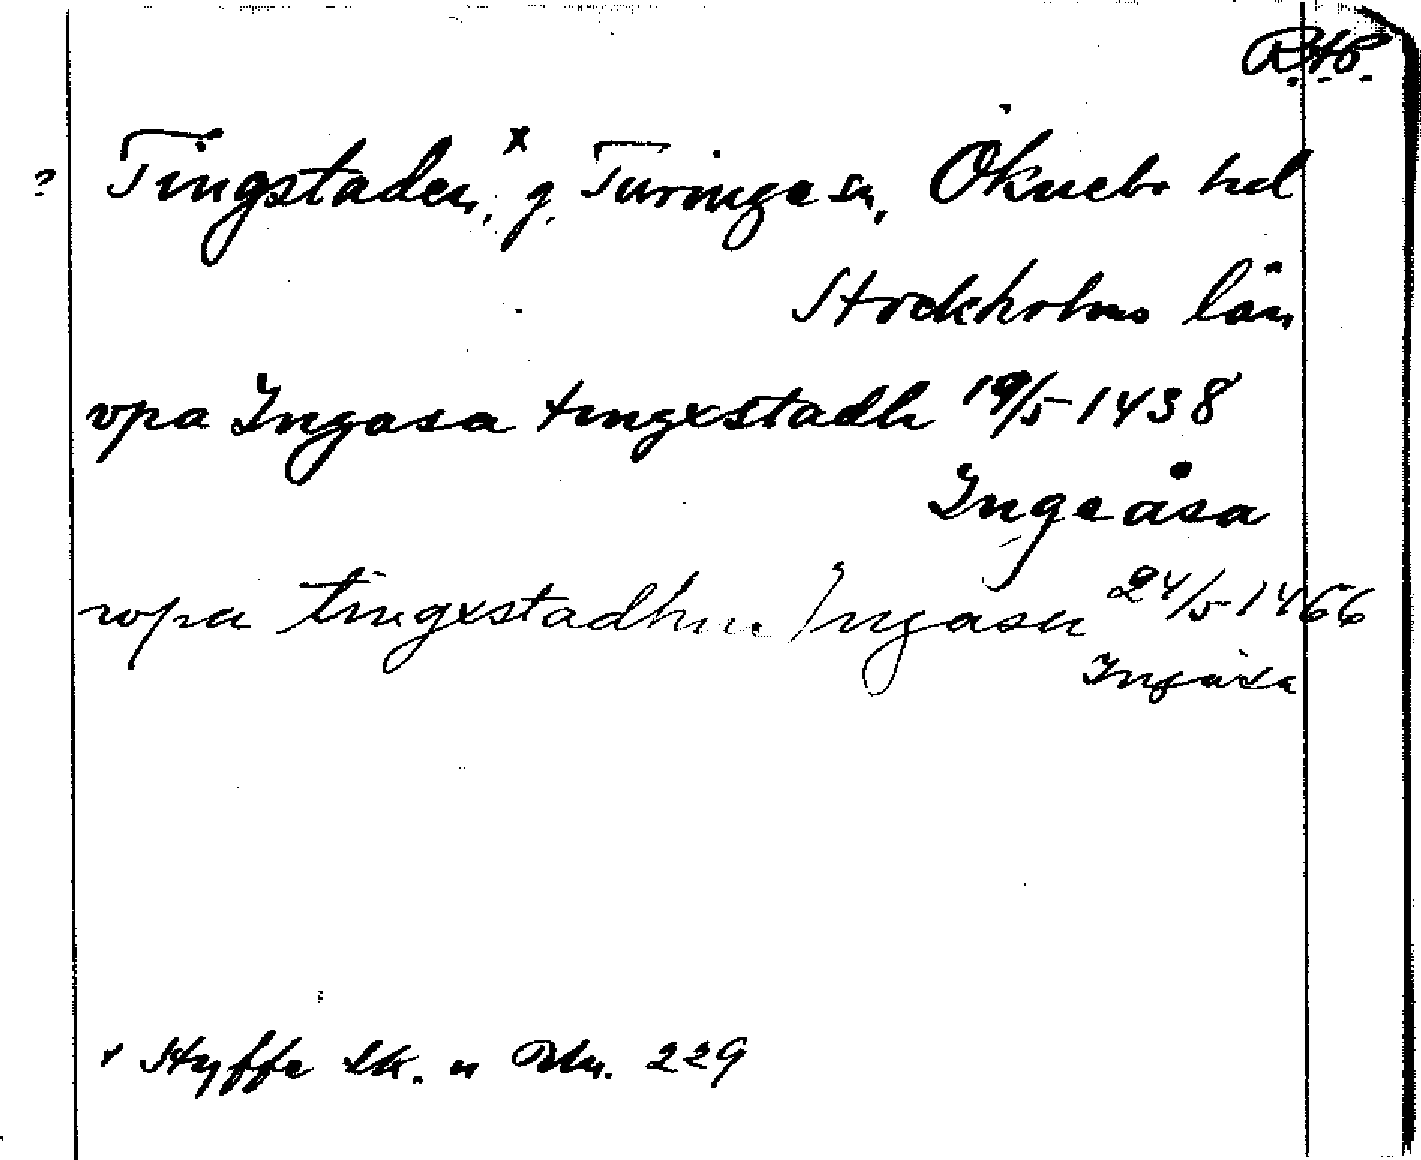 RAP.
? Tingstaden,ˣ g. Turinge sn, Öknebo hd
Stockholms län
vpa Ingasa tingxstadh 19/5 1438
Ingeåsa
wpa tingxstadhne Ingasa 24/5 1466
Ingåsa
x Styffe Sk. u Un. 229